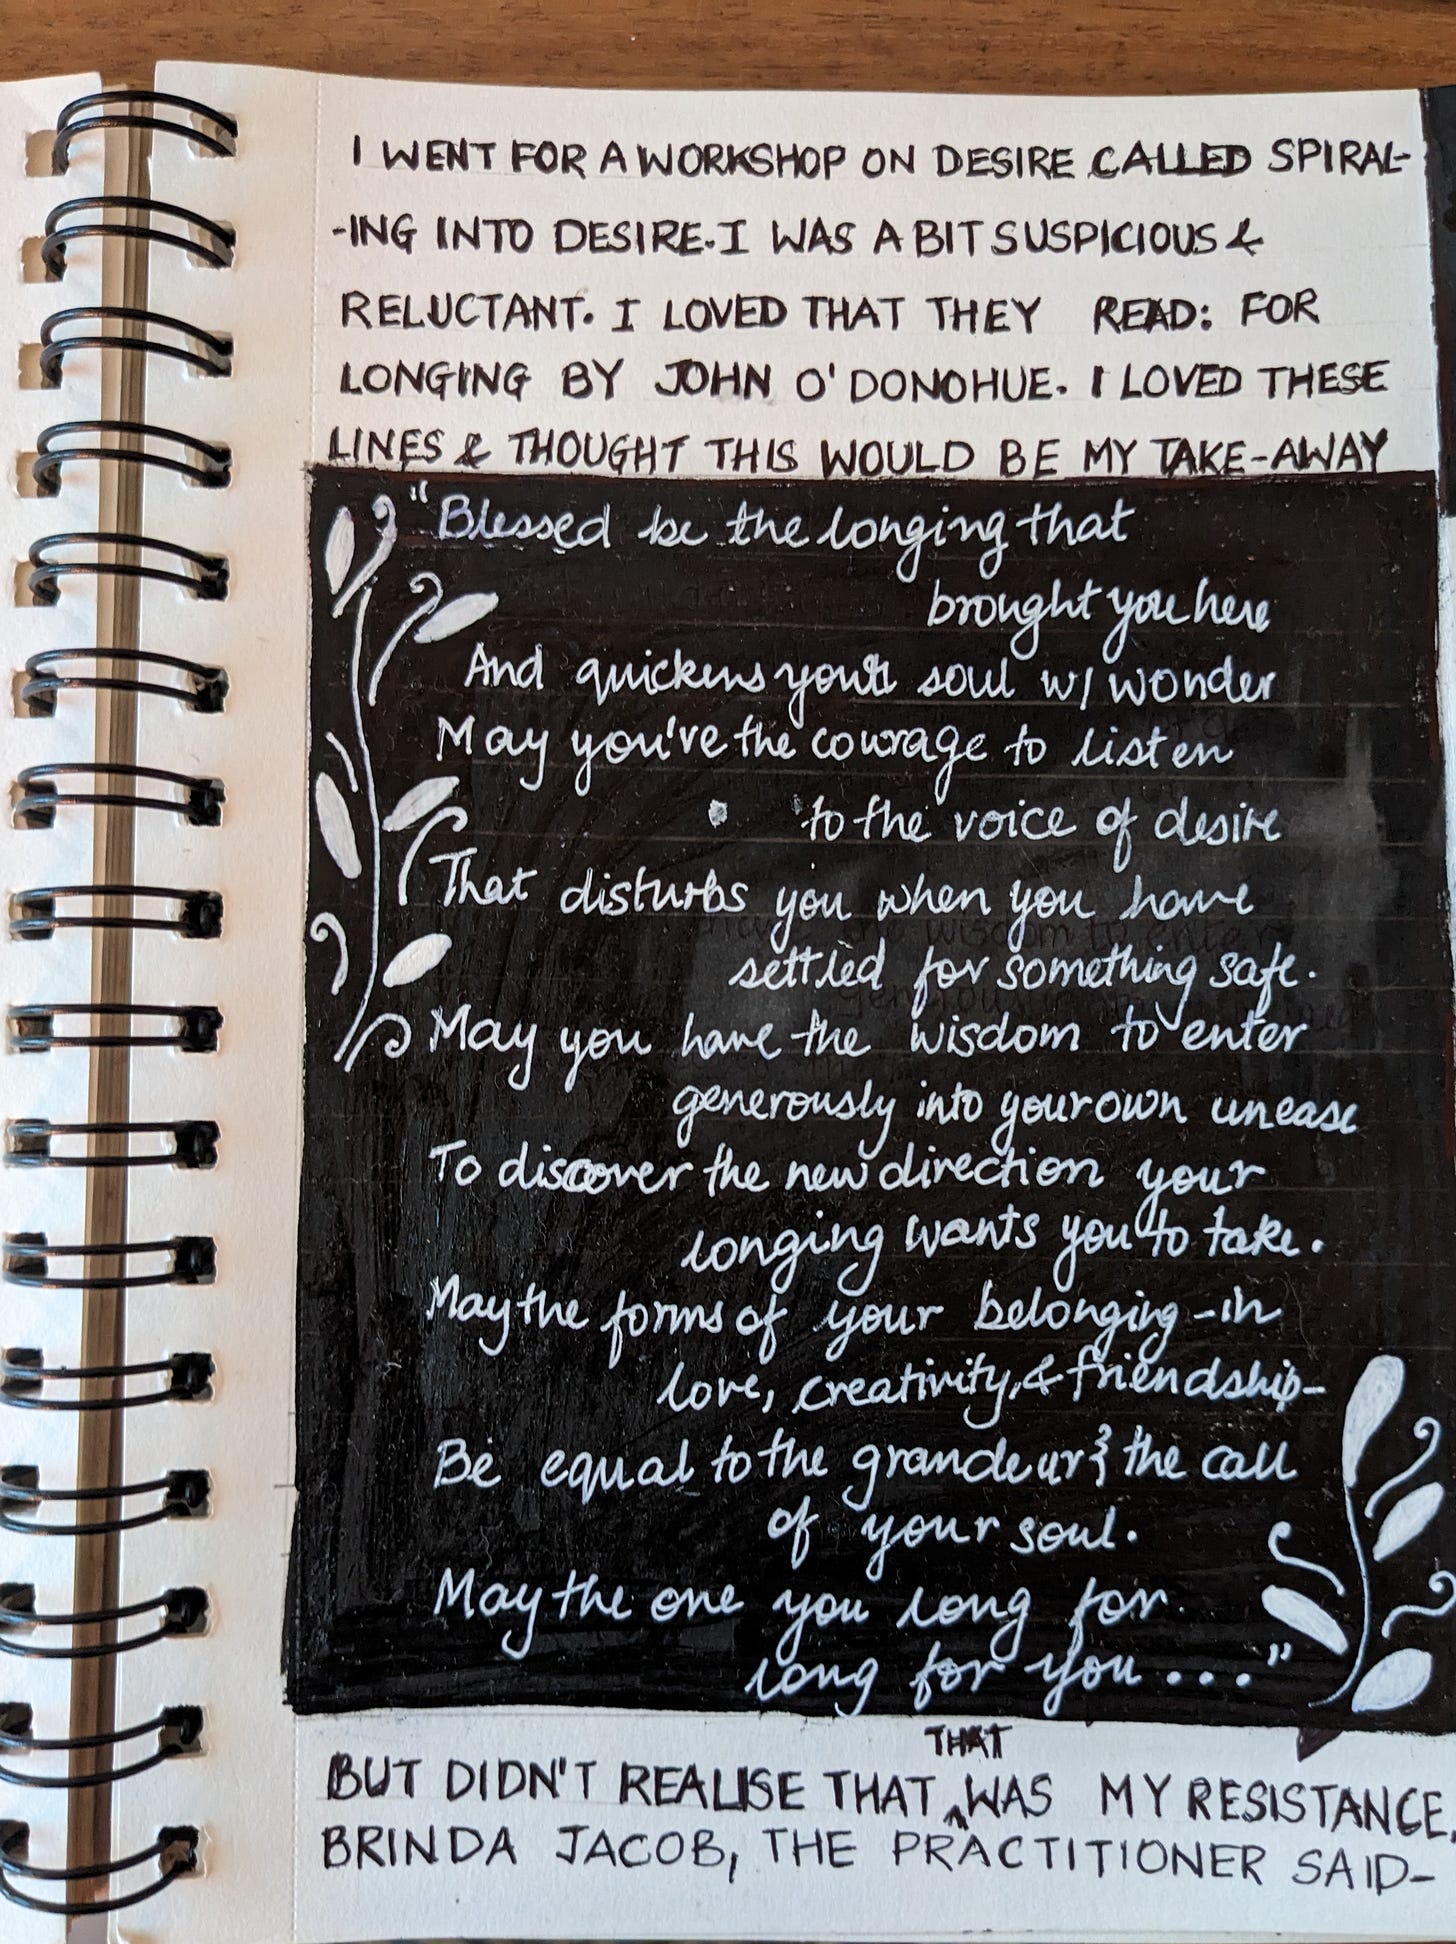 I WENT FOR A WORKSHOP ON DESIRE CALLED SPIRAL-
-ING INTO DESIRE. I WAS A BIT SUSPICIOUS &
RELUCTANT. I LOVED THAT THEY READ: FOR
LONGING BY JOHN O'DONOHUE. I LOVED THESE
LINES & THOUGHT THIS WOULD BE MY TAKE-AWAY
"Blessed be the longing that
brought you here
And quickens your soul w/ wonder
May you've the courage to listen
to the voice of desire
That disturbs you when you have
settled for something safe.
May you have the wisdom to enter
generously into your own unease
To discover the new direction your
longing wants you to take.
May the forms of your belonging -in
love, creativity, & friendship-
Be equal to the grandeur & the call
of your soul.
May the one you long for
long for you..."
THAT
BUT DIDN'T REALISE THAT ^ WAS MY RESISTANCE,
BRINDA JACOB, THE PRACTITIONER SAID-